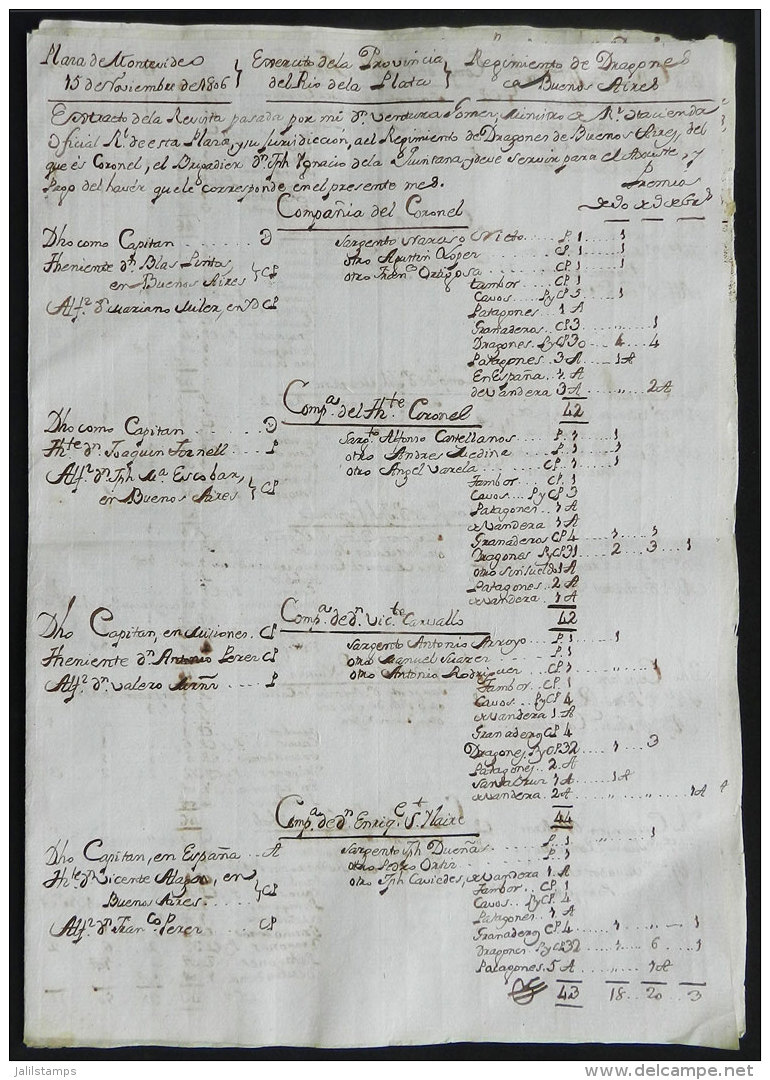 Plaza de Montevideo } Exercito de la Provincia } Regimiento de Dragones
15 de Noviembre de 1806 del Rio de la Plata de Buenos Aires
Extracto dela Revista pasada por mi dn. Ventura Gomez, Ministro de Rl. Hacienda
Oficial Rl. de esta Plaza, y su Jurisdiccion, al Regimiento de Dragones de Buenos Aires, del
que és Coronel, el Brigadier dn. Jph Ygnacio dela Quintana, y deve servir para el Ajuste, y
Pago del havér que le corresponde en el presente mes.
Premios
de 90 de de 6 rs
Compañia del Coronel
Dho como Capitan ........ D
Theniente dn. Blas Pintos,
en Buenos Aires } CP
Alfz. dn. Mariano Miler, en yd CP
Sargento Narciso Nieto .... P. 1 .... 1
otro Agustin Lopez .... CP. 1 .... 1
otro Franco. Ortigosa .... CP. 1
tambor .. CP. 1
Cavos .. PyCP 5 .... 1
Patagones .. 1 A
Granaderos .. CP3 .... " .... 1
Dragones .. PyCP30 .. 4 .. 4
Patagones .. 3 A .... 1A
En España .. 1. A
de Vandera 3 A .... " .. 2 A
42
Compa. del Thte. Coronel
Dho como Capitan ...... D
Thte dn. Joaquin Fornell .. P
Alfz. dn. Jph Ma. Escobar,
en Buenos Aires } CP
Sargto. Alfonso Castellanos .... P. 1 .... 1
otro Andres Medina .... P. 1 .... 1
otro Angel Varela ... CP. 1 .... 1
tambor .. CP. 1
Cavos .... PyCP 3
Patagones .. 1 A
de Vandera .. 1 A
Granaderos CP 4 .... 1 .... 1
Dragones .. PyCP31 .. 2 ... 3 ... 1
otro sin sueldo 1 A
Patagones .. 2 A
de Vandera .. 1 A
42
Compa. de dn. Victe. Carvallo
Dho Capitan, en Misiones. CP
Theniente dn. Antonio Perez CP
Alfz. dn. Valero .... P
Sargento Antonio Arroyo .. P. 1 .... 1
otro Manuel Suarez .... P. 1
otro Antonio Rodriguez .... CP. 1 .... 1
tambor .. CP. 1
Cavos .. PyCP 4
de Vandera .. 1. A
Granaderos CP 4
Dragones PyCP32 ... 1 .... 3
Patagones .. 2. A
Santa Cruz .. 1 A .... 1A
de Vandera .. 2 A .... " .... " .... 1A
44
Compa. de dn. Enriqe. St. Ylaire
Dho Capitan, en España .. A
Thte. dn. Vicente Alagon, en
Buenos Aires .... } CP
Alfz. dn. Franco. Perez CP
Sargento Jph Dueñas ..... P. 1 .... 1
otro Pedro Ortiz .... P. 1
otro Jph Caviedes, de Vandera 1. A
tambor .. CP. 1
Cavos .. PyCP. 4
Patagones .. 1 A
Granaderos CP 4 .... 1 .... " .... 1
Dragones .. PyCP32 .... 1 .. 6 .... 1
Patagones .. 5 A .... " .. 1A
43 18 .. 20 .. 3
Jalilstamps